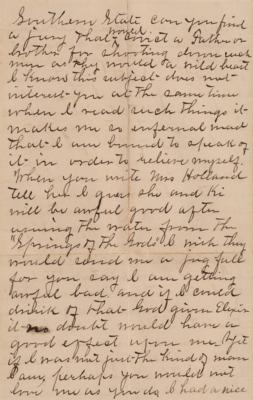 Southern State can you find
a jury that would convict a Father or
brother for shooting down such
men as they would a wild beast
I know this subject does not
interest you at the same time
when I read such things it
makes me so infernal mad
that I am bound to speak of
it in order to relieve myself.
When you write Mrs Holland
tell her I guess she and Ki
will be awful good after
using the water from the
"Springs of the Gods" I wish they
would send me a jug full
for you say I am getting
awful bad and if I could
drink of that God given Elixir
it no doubt would have a
good effect upon me. Yet
if I was not just the kind of man
I am, perhaps you would not
love me as you do. I had a nice